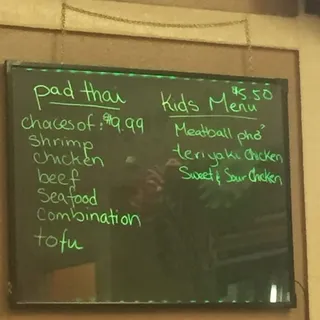 pad thai
choices of: $9.99
shrimp
chicken
beef
Seafood
combination
tofu
Kids Menu $5.50
Meatball pho
teriyaki chicken
Sweet & Sour Chicken